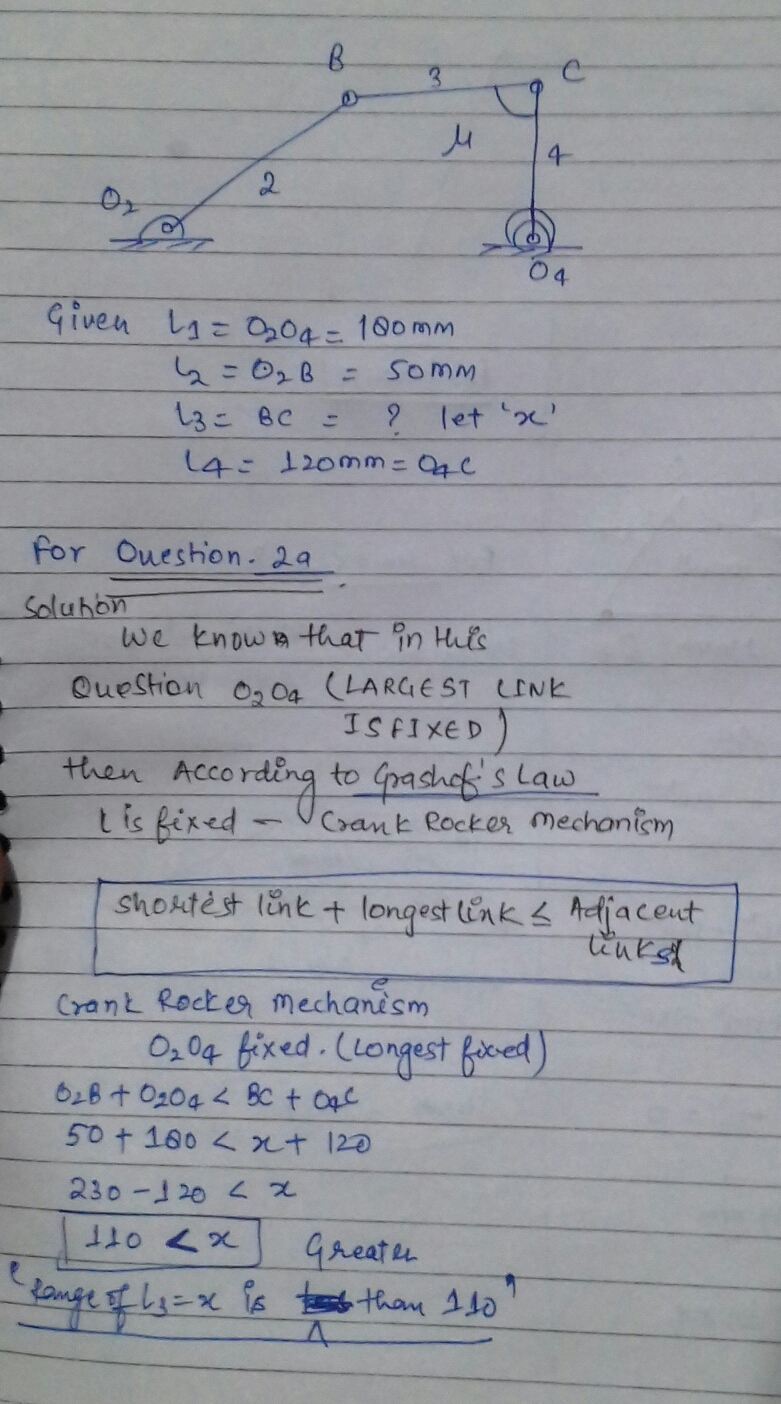 B
3
C
μ
4
O2
2
O4
Given L1 = O2O4 = 180mm
L2 = O2B = 50mm
L3 = BC = ? let 'x'
L4 = 120mm = O4C
For Question. 2a
Solution
We know that in this
Question O2O4 (LARGEST LINK
IS FIXED)
then According to Grashof's Law
l is fixed - Crank Rocker mechanism
shortest link + longest link ≤ Adjacent
links
Crank Rocker mechanism
O2O4 fixed. (Longest fixed)
O2B + O2O4 < BC + O4C
50 + 180 < x + 120
230 - 120 < x
110 < x
Greater
"Range of L3 = x is ^ than 110"